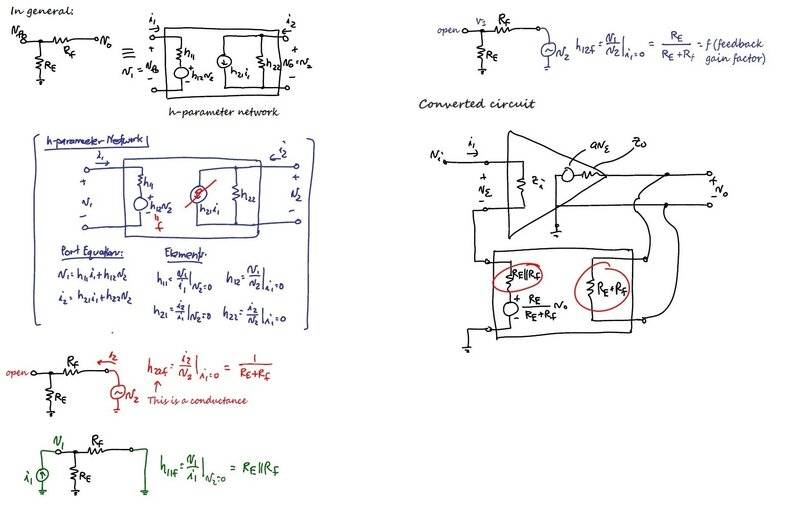 In general:
i₁
i₂
v_fb
R_F
v_o
R_E
≡
+
v₁ = v_fb
-
h₁₁
+
h₁₂v₂
-
h₂₁i₁
h₂₂
+
v_o = v₂
-
h-parameter network
h-parameter Network
i₁
i₂
+
v₁
-
h₁₁
+
h₁₂v₂
-
"
f
h₂₁i₁
h₂₂
+
v₂
-
Port Equation:
v₁ = h₁₁i₁ + h₁₂v₂
i₂ = h₂₁i₁ + h₂₂v₂
Element:
h₁₁ = v₁/i₁ |v₂=0 h₁₂ = v₁/v₂ |i₁=0
h₂₁ = i₂/i₁ |v₂=0 h₂₂ = i₂/v₂ |i₁=0
open
R_f
i₂
R_E
v₂
h₂₂f = i₂/v₂ |i₁=0 = 1/(R_E+R_f)
This is a conductance
v₁
R_f
i₁
R_E
h₁₁f = v₁/i₁ |v₂=0 = R_E||R_f
open
R_f
R_E
v₂
h₁₂f = v₁/v₂ |i₁=0 = R_E/(R_E+R_f) = f (feedback
gain factor)
Converted circuit
v_i
i₁
+
v_ε
-
z_i
av_ε
z_o
+
v_o
-
R_E||R_f
+
R_E/(R_E+R_f) v_o
-
R_E+R_f